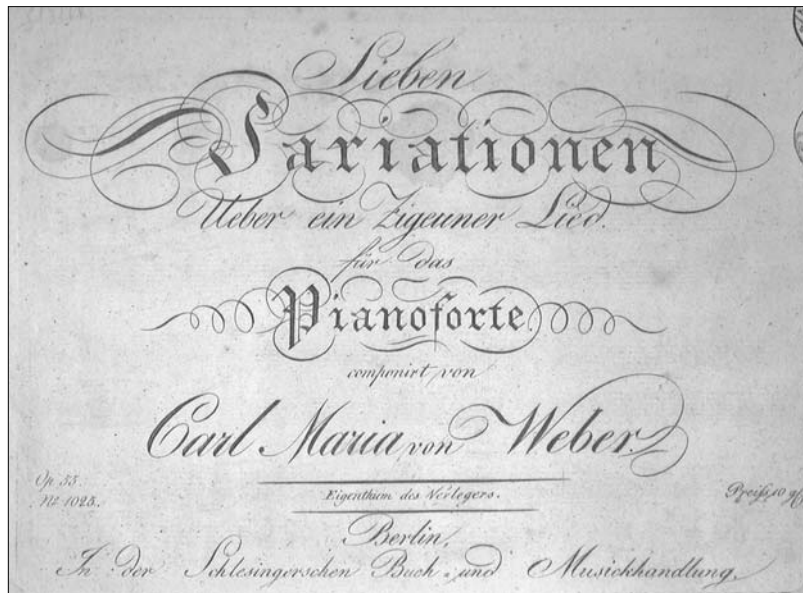 Sieben
Variationen
Ueber ein Zigeuner Lied.
für das
Pianoforte
componirt von
Carl Maria von Weber.
Op. 55.
No. 1025.
Eigenthum des Verlegers.
Preifs, 10 gr.
Berlin,
In der Schlesingerschen Buch- und Musickhandlung.